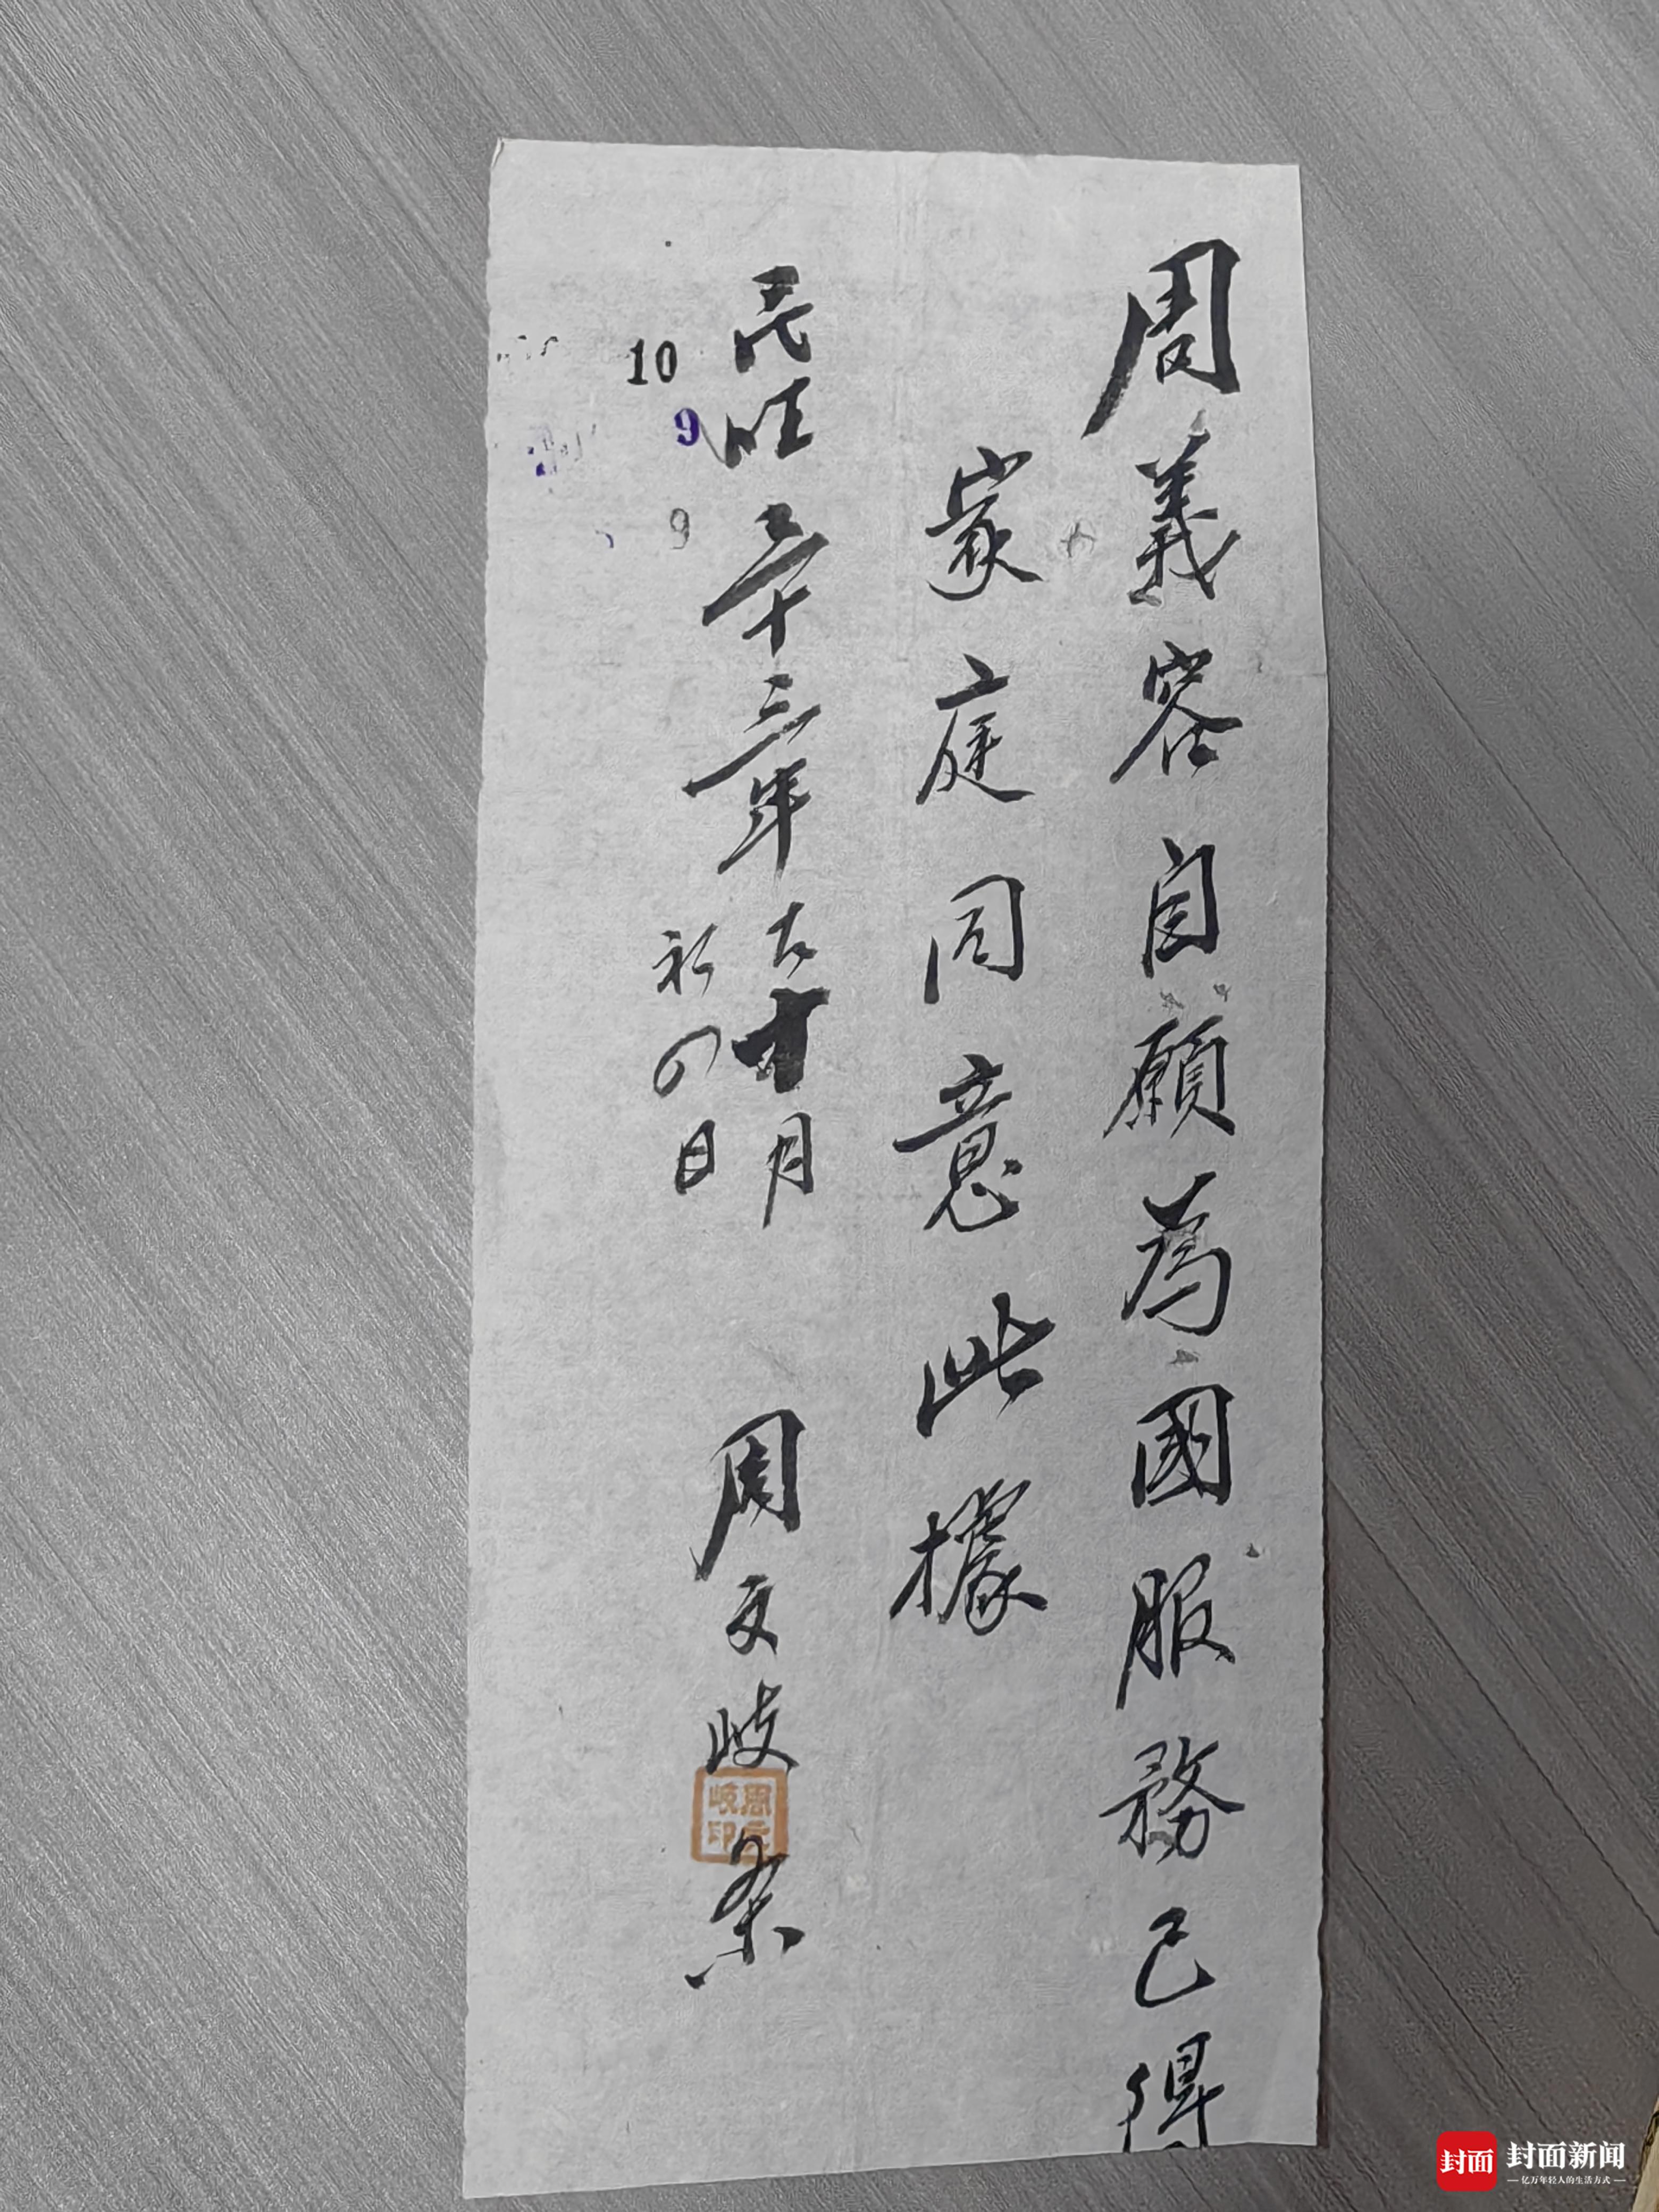 周義容自願為國服務已得
家庭同意此據
民囯三十三年古十月
初四日
周文岐条
周文岐印
10
9
9
封面
封面新闻
亿万年轻人的生活方式